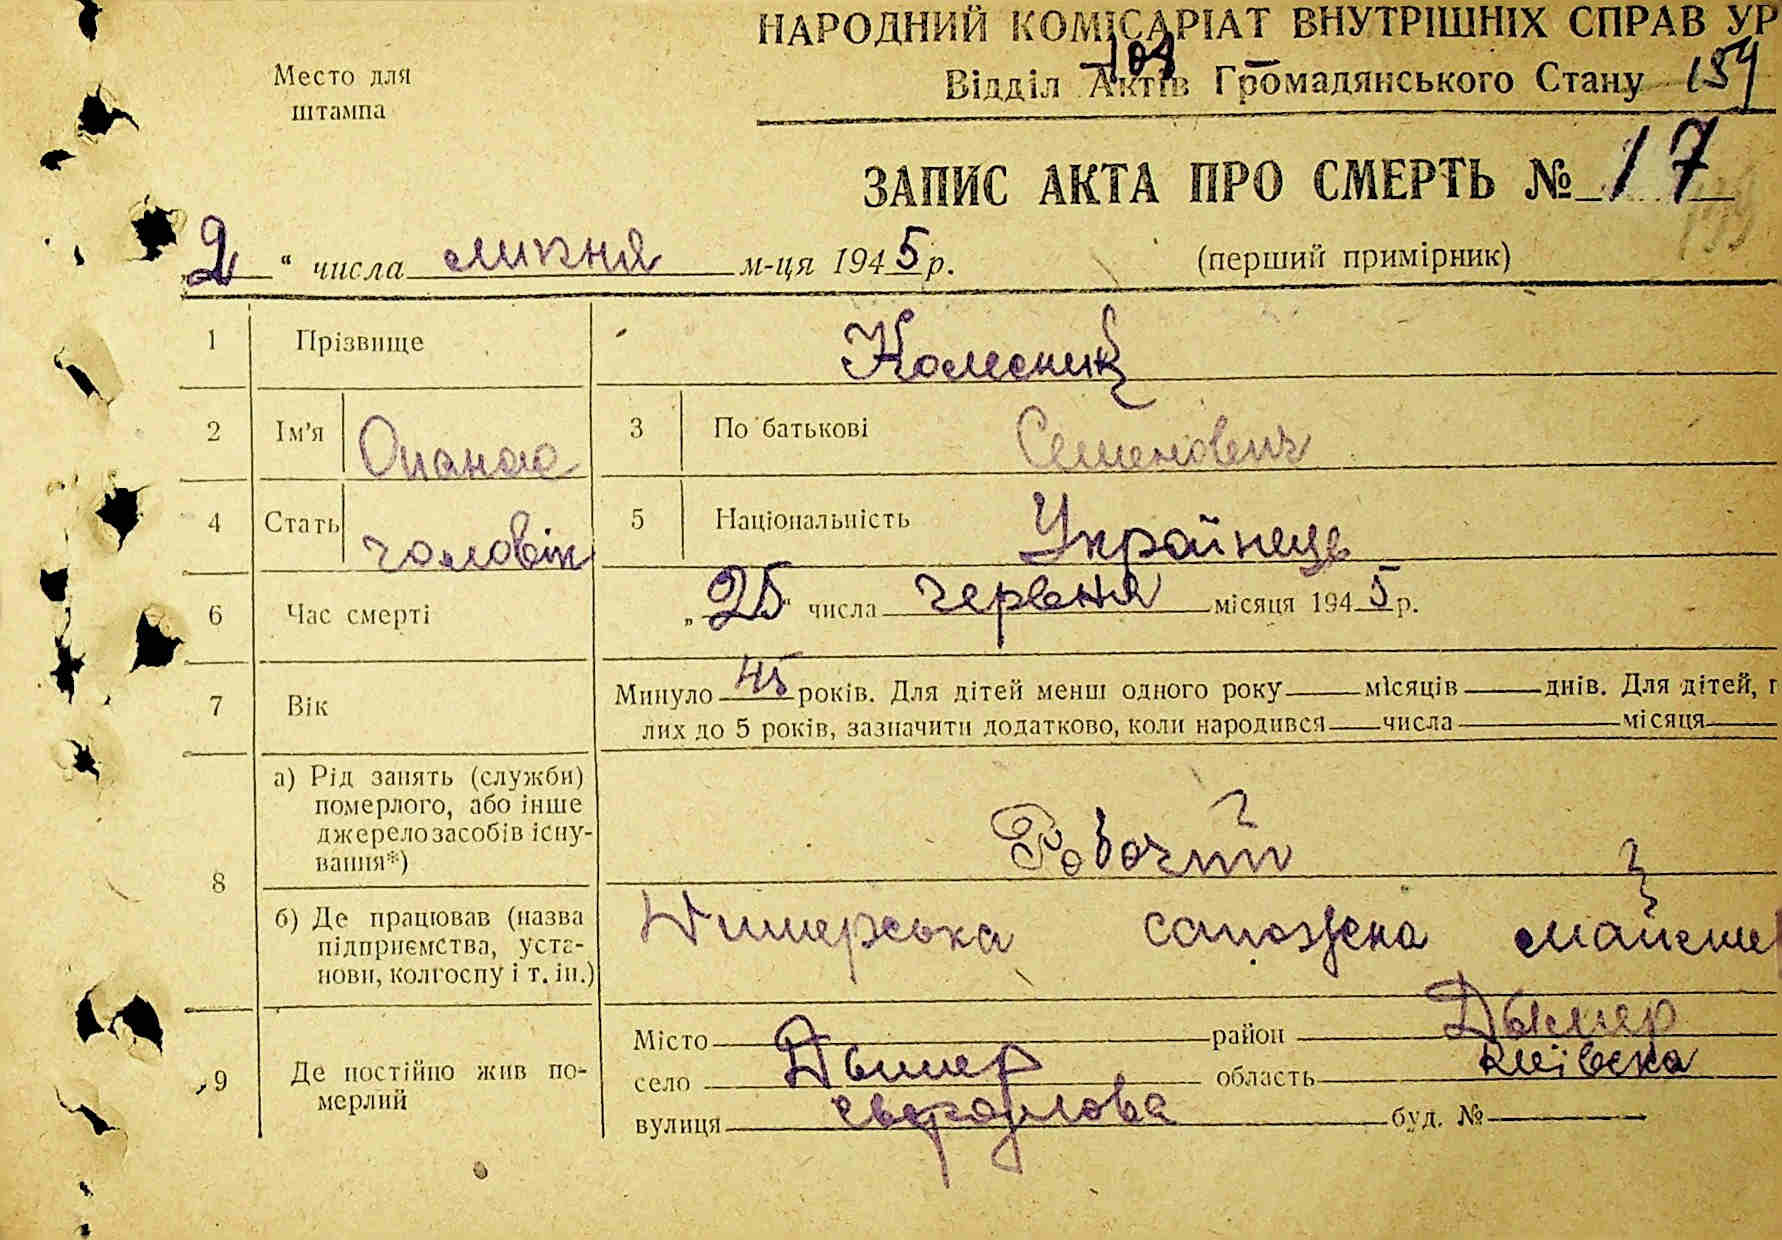 НАРОДНИЙ КОМІСАРІАТ ВНУТРІШНІХ СПРАВ УР
Відділ Актів Громадянського Стану
Место для
штампа
ЗАПИС АКТА ПРО СМЕРТЬ № 17
2 “ числа липня м-ця 1945 р.
(перший примірник)
1 Прізвище Колесник
2 Ім'я Опанас 3 По батькові Семенович
4 Стать чоловік 5 Національність Українець
6 Час смерті „25“ числа червня місяця 1945 р.
7 Вік Минуло 45 років. Для дітей менш одного року місяців днів. Для дітей,
лих до 5 років, зазначити додатково, коли народився числа місяця
8 а) Рід занять (служби)
померлого, або інше
джерело засобів існу-
вання*) Робочий
б) Де працював (назва
підприємства, уста-
нови, колгоспу і т. ін.) Димерська сапожна майстер
9 Де постійно жив по-
мерлий
Місто район Дымер
село Дымер область Київска
вулиця буд. №